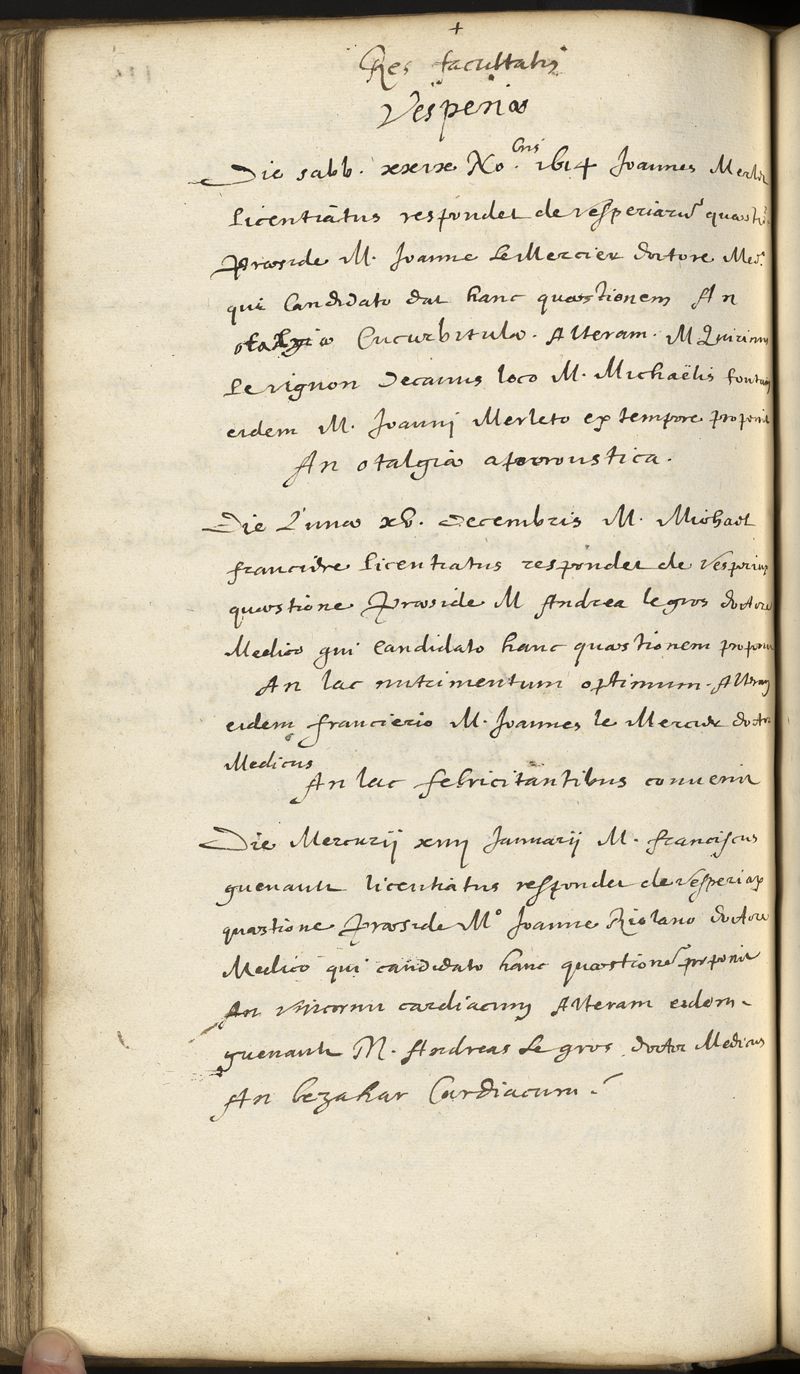 +
Res facultatis
Vesperiæ
Die sabb. xxix No.bris 1614 Joannes Merlet
Licentiatus respondet de vesperiarū quæsti
Præside M. Joanne Le Mercier doctore Med.
qui Candidato dat hanc quæstionem An
otalgiæ Cucurbitulæ. Alteram. M Quirinus
Le vignon Decanus loco M. Michaëlis
eidem M. Joannj Merleto ex tempore proponit
An otalgiæ
Die Lunæ xv. Decembris M. Michael
licentiatus respondet de
quæstione Præside M Andrea le gros doctore
Medico qui Candidato hanc quæstionem proponit
An lac nutrimentum optimum. Alteram
eidem francierio M. Joannes le Mercier doctor
Medicus
An lac febricitantibus conuenit
Die Mercurij xiiij Januarij M. franciscus
guenault licentiatus respondet de
quæstione Præside Mo Joanne Riolano doctore
Medico qui candidato hanc quæstionē proponit
An vnicornu cardiacum Alteram eidem
guenault M. Andreas Le gros doctor Medicus
An bezahar Cardiacum.